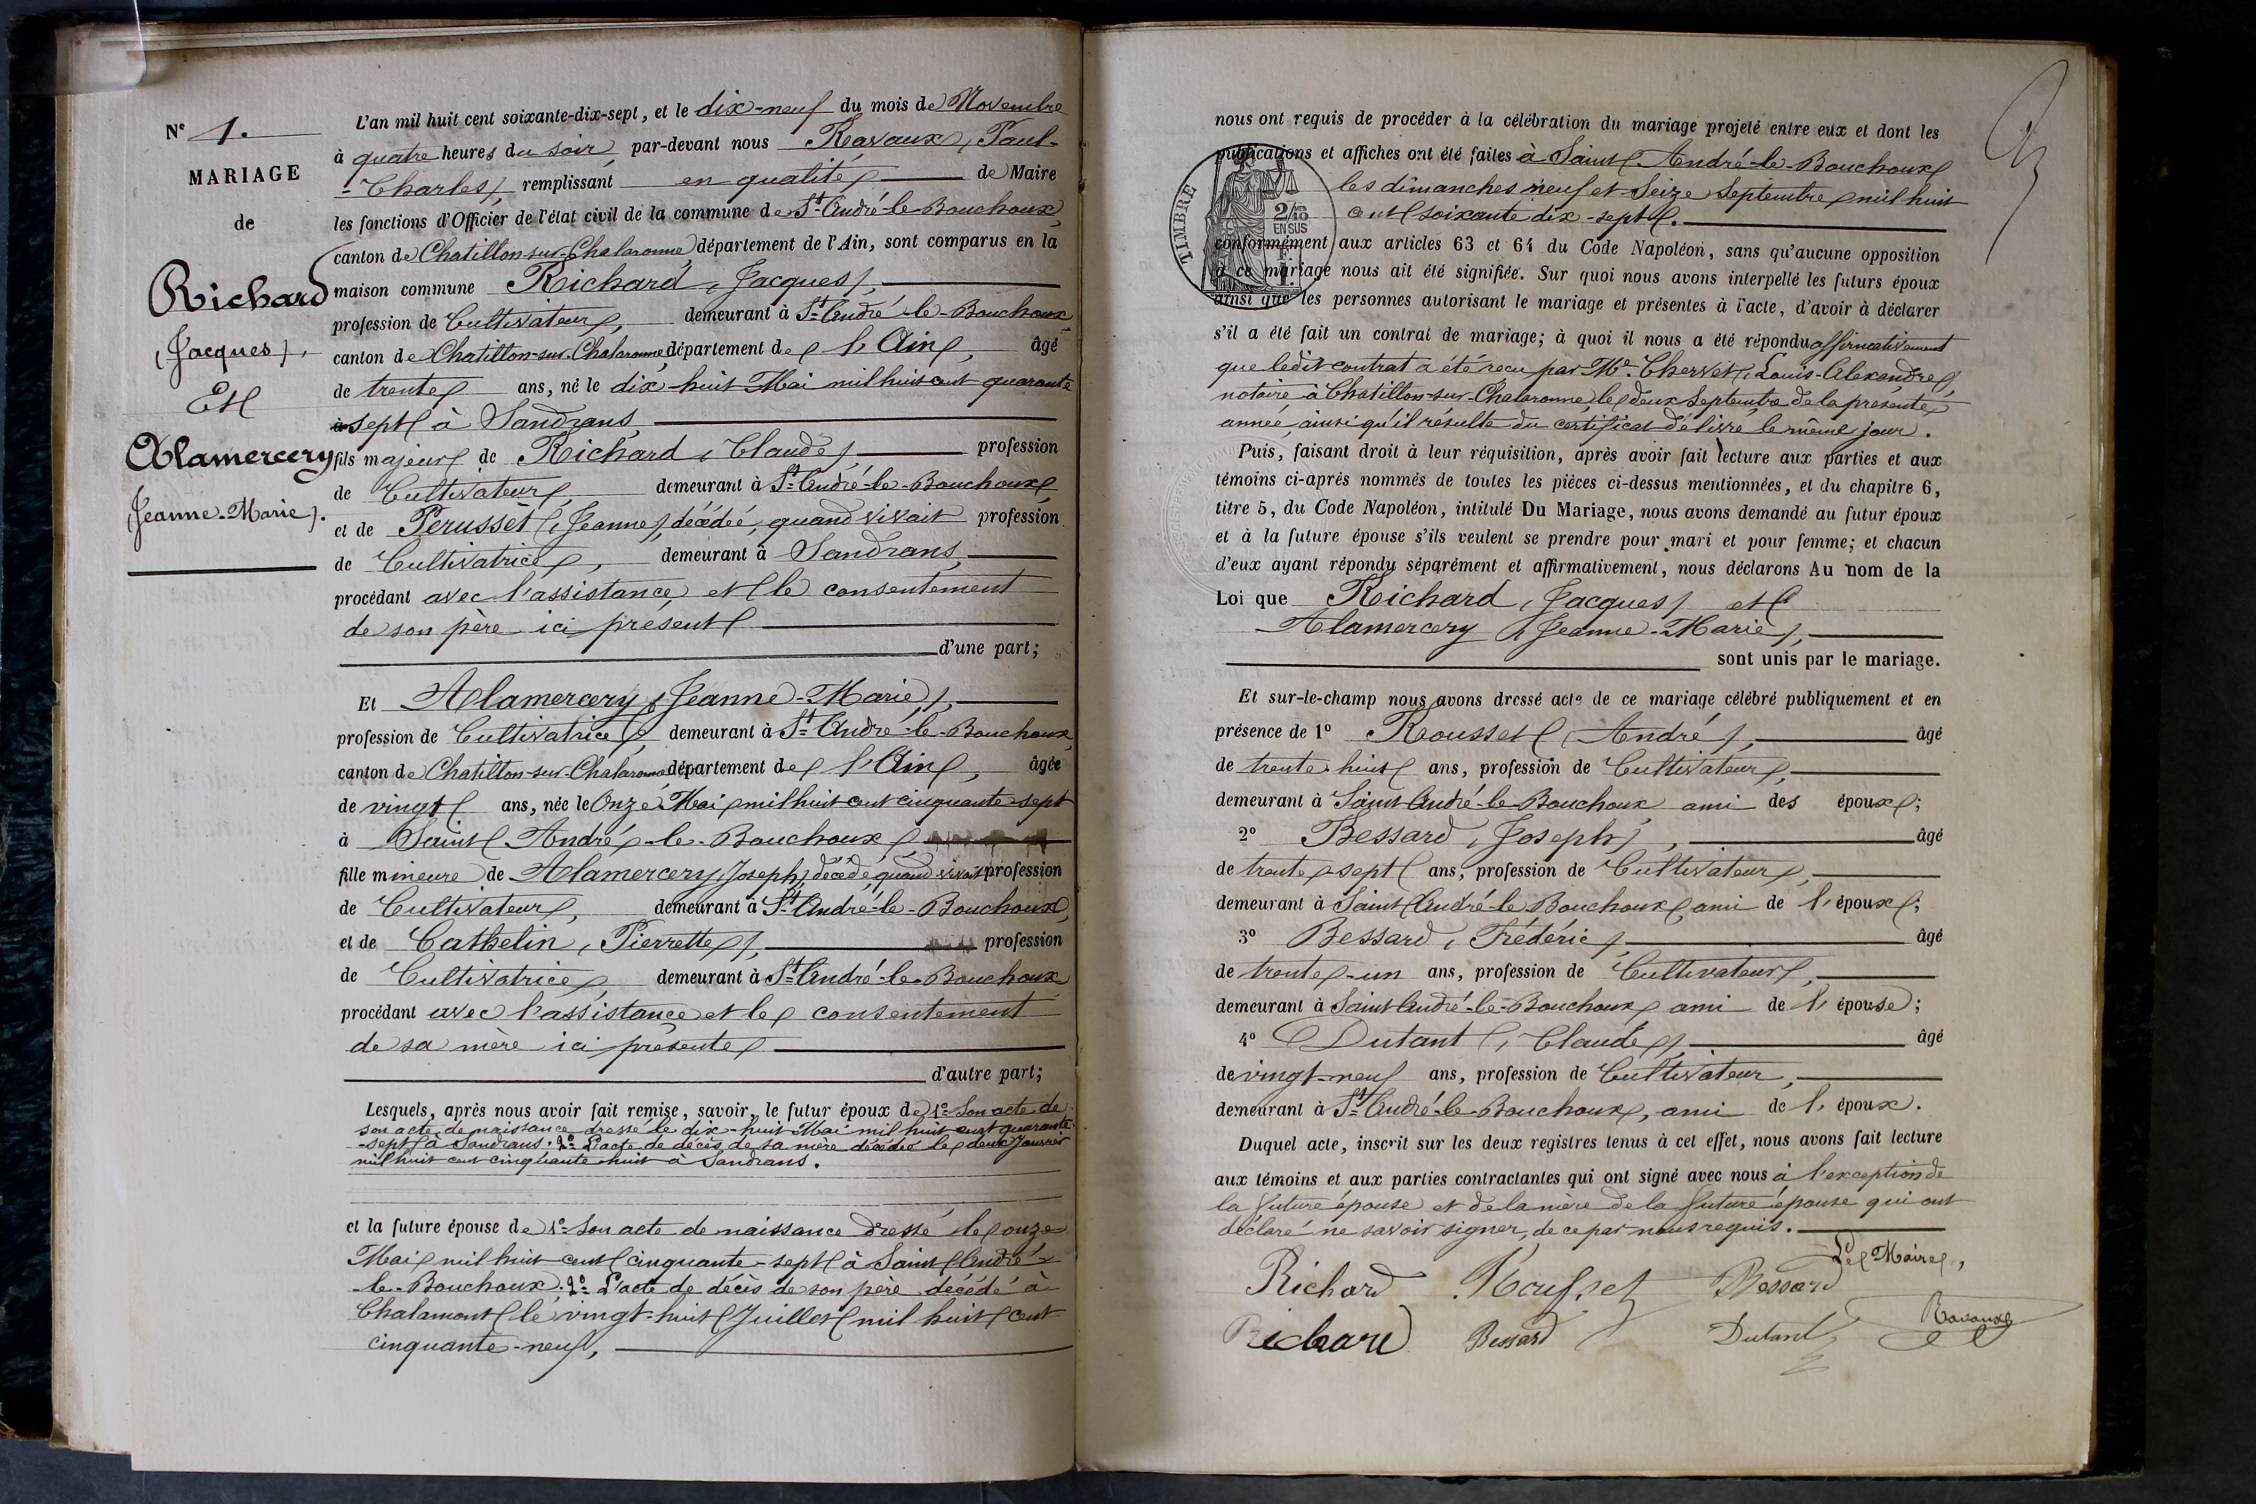 N° 1.
MARIAGE
de
Richard
(Jacques),
Et
Alamercery
(Jeanne-Marie).
L'an mil huit cent soixante-dix-sept, et le dix-neuf du mois de Novembre
à quatre heures du soir par-devant nous Ravaux, Paul-
-Charles, remplissant en qualité de Maire
les fonctions d'Officier de l'état civil de la commune de St André-le-Bouchoux,
canton de Chatillon-sur-Chalaronne, département de l'Ain, sont comparus en la
maison commune Richard (Jacques),
profession de Cultivateur, demeurant à St André-le-Bouchoux
canton de Chatillon-sur-Chalaronne, département de l'Ain, âgé
de trente ans, né le dix-huit Mai mil huit cent quarante
sept à Sandrans
fils majeur de Richard (Claude) profession
de Cultivateur, demeurant à St André-le-Bouchoux,
et de Perusset (Jeanne), décédée, quand vivait profession
de Cultivatrice, demeurant à Sandrans,
procédant avec l'assistance et le consentement
de son père ici présent
d'une part;
Et Alamercery (Jeanne-Marie),
profession de Cultivatrice, demeurant à St André-le-Bouchoux,
canton de Chatillon-sur-Chalaronne département de l'Ain, âgée
de vingt ans, née le Onze Mai mil huit cent cinquante-sept
à Saint André-le-Bouchoux
fille mineure de Alamercery (Joseph) décédé quand vivait profession
de Cultivateur, demeurant à St André-le-Bouchoux,
et de Cathelin (Pierrette), profession
de Cultivatrice, demeurant à St André-le-Bouchoux
procédant avec l'assistance et le consentement
de sa mère ici présente
d'autre part;
Lesquels, après nous avoir fait remise, savoir, le futur époux de 1° Son acte de
son acte de naissance dressé le dix-huit Mai mil huit cent quarante
-sept à Sandrans. 2° L'acte de décès de sa mère décédée le deux Janvier
mil huit cent cinquante huit à Sandrans.
et la future épouse de 1° Son acte de naissance dressé le onze
Mai mil huit cent cinquante-sept à Saint André-
le-Bouchoux. 2° L'acte de décès de son père décédé à
Chalamont le vingt-huit Juillet mil huit cent
cinquante-neuf,
nous ont requis de procéder à la célébration du mariage projeté entre eux et dont les
publications et affiches ont été faites à Saint André-le-Bouchoux
les dimanches neuf et Seize Septembre mil huit
cent soixante dix-sept.
TIMBRE
2/10
EN SUS
1 F.
conformément aux articles 63 et 64 du Code Napoléon, sans qu'aucune opposition
à ce mariage nous ait été signifiée. Sur quoi nous avons interpellé les futurs époux
ainsi que les personnes autorisant le mariage et présentes à l'acte, d'avoir à déclarer
s'il a été fait un contrat de mariage; à quoi il nous a été répondu affirmativement
que ledit contrat a été reçu par Me Chervet, Louis-Alexandre,
notaire à Chatillon-sur-Chalaronne, le deux Septembre de la présente
année, ainsi qu'il résulte du certificat délivré le même jour.
Puis, faisant droit à leur réquisition, après avoir fait lecture aux parties et aux
témoins ci-après nommés de toutes les pièces ci-dessus mentionnées, et du chapitre 6,
titre 5, du Code Napoléon, intitulé Du Mariage, nous avons demandé au futur époux
et à la future épouse s'ils veulent se prendre pour mari et pour femme; et chacun
d'eux ayant répondu séparément et affirmativement, nous déclarons Au nom de la
Loi que Richard (Jacques) et
Alamercery (Jeanne-Marie),
sont unis par le mariage.
Et sur-le-champ nous avons dressé acte de ce mariage célébré publiquement et en
présence de 1° Rousset (André), âgé
de trente huit ans, profession de Cultivateur,
demeurant à Saint André-le-Bouchoux ami des époux;
2° Bessard (Joseph), âgé
de trente-sept ans, profession de Cultivateur,
demeurant à Saint André-le-Bouchoux, ami de l'époux;
3° Bessard (Frédéric), âgé
de trente-un ans, profession de Cultivateur,
demeurant à Saint André-le-Bouchoux ami de l'épouse;
4° Dutant (Claude), âgé
de vingt-neuf ans, profession de Cultivateur,
demeurant à St André-le-Bouchoux, ami de l'époux.
Duquel acte, inscrit sur les deux registres tenus à cet effet, nous avons fait lecture
aux témoins et aux parties contractantes qui ont signé avec nous à l'exception de
la future épouse et de la mère de la future épouse qui ont
déclaré ne savoir signer, de ce par nous requis.
Le Maire,
Richard Rousset Bessard
Richard Bessard Dutant Ravaux